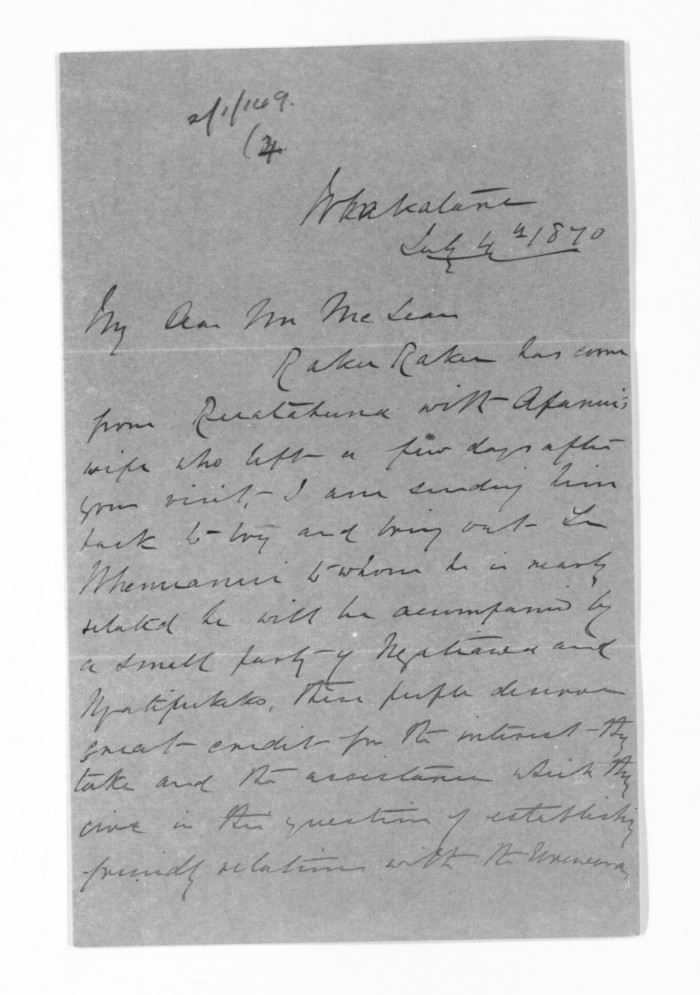 2/1/149.
(24
Whakatāne
July 4th 1870
My Dear Mr McLean
Raker Raker has come
from Ruatahuna with Apanui's
wife who left a few days after
your visit, - I am sending him
back to try and bring out Te
Whenuanui to whom he is nearly
related he will be accompanied by
a small party of Ngatiawa and
Ngatipukeko. These people deserve
great credit for the interest they
take and the assistance which they
give in the question of establishing
friendly relations with the Urewera,